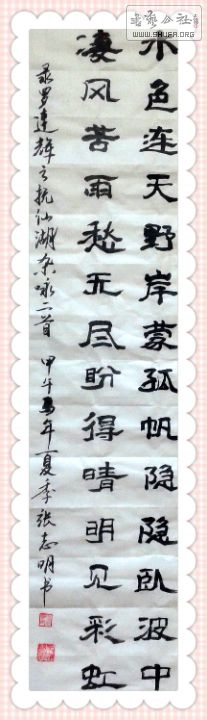 书艺公社
WWW.SHUFA.ORG
水色连天野岸蒙孤帆隐隐卧波中
凄风苦雨愁无尽盼得晴明见彩虹
录罗之抚仙湖杂咏二首 甲午马年夏季张志明书